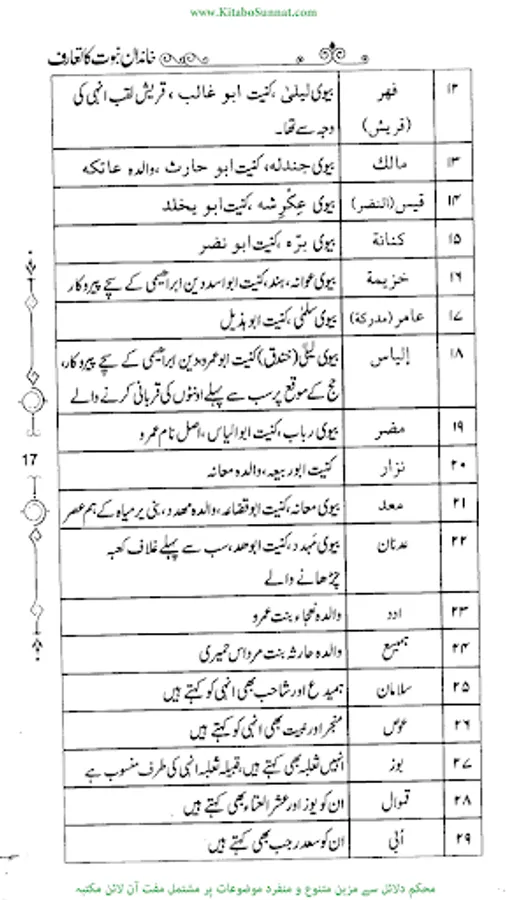 www.KitaboSunnat.com
خاندان نبوت کا تعارف
۱۲ فهر بیوی لیلیٰ، کنیت ابو غالب، قریش لقب انہی کی
(قریش) وجہ سے تھا۔
۱۳ مالك بیوی جندلہ، کنیت ابو حارث، والدہ عاتکہ
۱۴ قیس (النضر) بیوی عِکْرِشہ، کنیت ابو یخلد
۱۵ کنانة بیوی برّہ، کنیت ابو نضر
۱۶ خزیمة بیوی عوانہ، ہند، کنیت ابو اسد دین ابراہیمی کے سچے پیروکار
۱۷ عامر (مدرکة) بیوی سلمٰی، کنیت ابو ہذیل
۱۸ إلیاس بیوی لیلیٰ (خندق) کنیت ابو عمرو، دین ابراہیمی کے سچے پیروکار،
حج کے موقع پر سب سے پہلے اونٹوں کی قربانی کرنے والے
۱۹ مضر بیوی رباب، کنیت ابو الیاس، اصل نام عمرو
۲۰ نزار کنیت ابو ربیعہ، والدہ معانہ
۲۱ معد بیوی معانہ، کنیت ابو قضاعہ، والدہ مھدد، بنی یرمیاہ کے ہم عصر
۲۲ عدنان بیوی مَہدد، کنیت ابو معد، سب سے پہلے غلاف کعبہ
چڑھانے والے
۲۳ ادد والدہ بنت عمرو
۲۴ ہمیسع والدہ حارثہ بنت مرداس حمیری
۲۵ سلامان ہمیدع اور شاحب بھی انہی کو کہتے ہیں
۲۶ عوص منجر اور بھی انہی کو کہتے ہیں
۲۷ بوز انہیں ثعلبہ بھی کہتے ہیں، قبیلہ ثعلبہ انہی کی طرف منسوب ہے
۲۸ قموال ان کو بوز اور عشر العتاء بھی کہتے ہیں
۲۹ أبی ان کو سعد رجب بھی کہتے ہیں
17
محکم دلائل سے مزین متنوع و منفرد موضوعات پر مشتمل مفت آن لائن مکتبہ